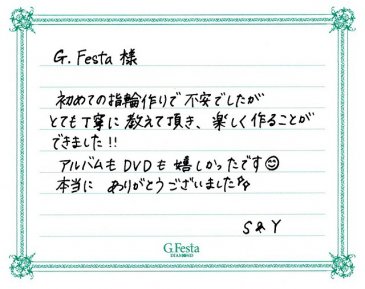 G. Festa 様
初めての指輪作りで不安でしたが
とても丁寧に教えて頂き、楽しく作ることが
できました!!
アルバムもDVDも嬉しかったです☺
本当に ありがとうございました
S&Y
G.Festa
DIAMOND